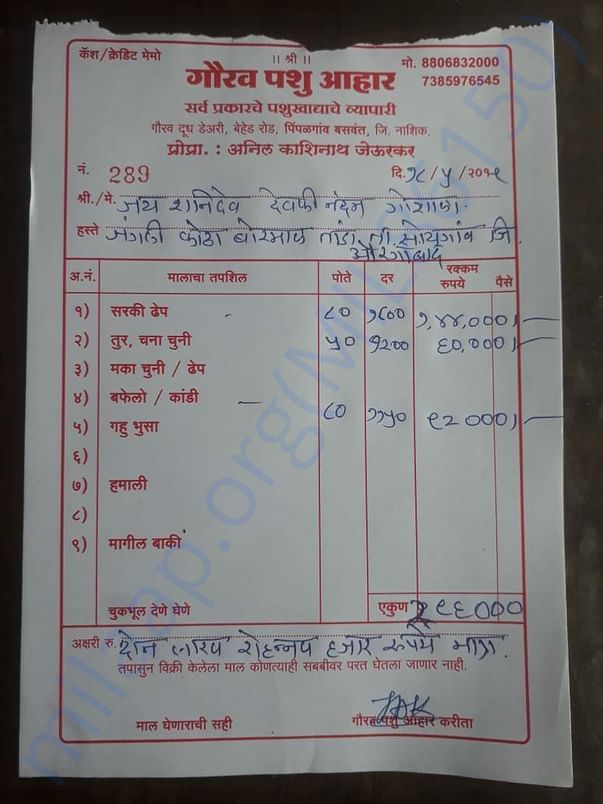 कॅश/क्रेडिट मेमो
।। श्री ।।
मो. 8806832000
7385976545
गौरव पशु आहार
सर्व प्रकारचे पशुखाद्याचे व्यापारी
गौरव दूध डेअरी, बेहेड रोड, पिंपळगांव बसवंत, जि. नाशिक.
प्रोप्रा. : अनिल काशिनाथ जेऊरकर
नं. 289
दि. १८/५/२०२५
श्री./मे. जय शनिदेव देवकी नंदन गोशाळा.
हस्ते जंगली कोठा बोरमाळ तांडा ता. सोयगांव जि.
औरंगाबाद
अ.नं. मालाचा तपशिल पोते दर रक्कम रुपये पैसे
१) सरकी ढेप ८० १८०० १,४४,०००/-
२) तुर, चना चुनी ५० १२०० ६०,०००/-
३) मका चुनी / ढेप
४) बफेलो / कांडी ८० ११५० ९२०००/-
५) गहु भुसा
६)
७) हमाली
८)
९) मागील बाकी
चुकभूल देणे घेणे एकुण २९६०००
अक्षरी रु. दोन लाख शेहन्नव हजार रुपये मात्र.
तपासुन विक्री केलेला माल कोणत्याही सबबीवर परत घेतला जाणार नाही.
माल घेणाराची सही
गौरव पशु आहार करीता
milaap.org(MIL
6150)